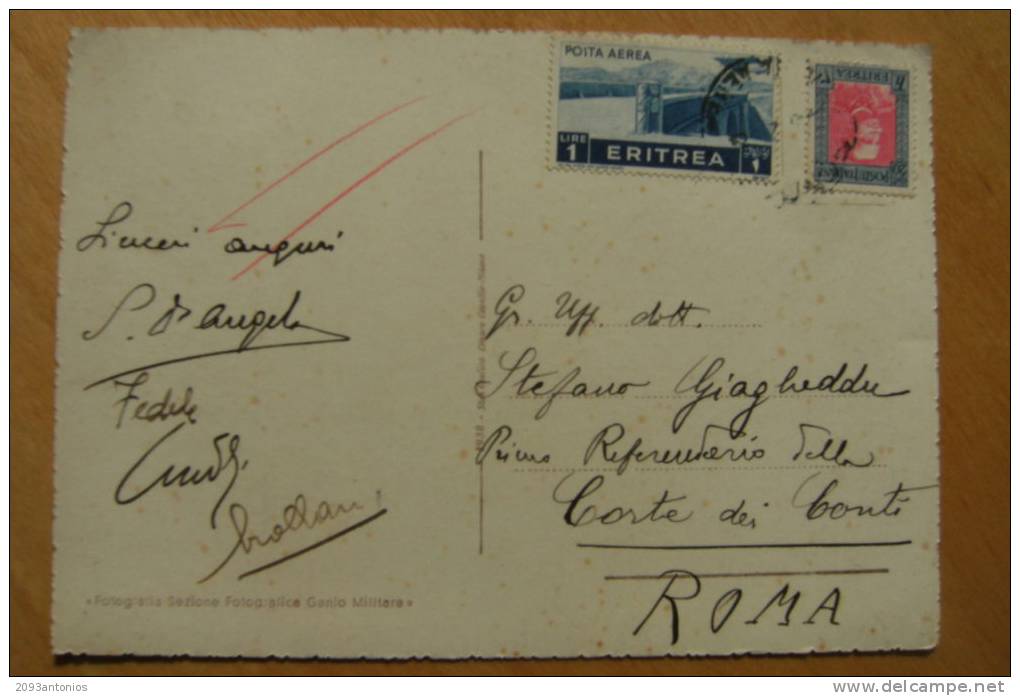 POSTA AEREA
LIRE
1
ERITREA
1
ERITREA
POSTE ITALIANE
Sinceri auguri
S. D'Angelo
Fedele
Gr. Uff. dott.
Stefano Giagheddu
Primo Referendario della
Corte dei Conti
ROMA
«Fotografia Sezione Fotografica Genio Militare»
2093antonios
www.delcampe.net